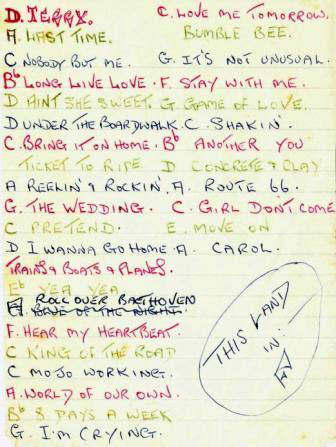 D. TERRY. C. LOVE ME TOMORROW.
A. LAST TIME. BUMBLE BEE.
C NOBODY BUT ME. G. IT'S NOT UNUSUAL.
Bb LONG LIVE LOVE. F. STAY WITH ME.
D AINT SHE SWEET. G. GAME OF LOVE.
D UNDER THE BOARDWALK. C. SHAKIN'.
C. BRING IT ON HOME. Bb ANOTHER YOU
TICKET TO RIDE D CONCRETE & CLAY
A REELIN' & ROCKIN'. A. ROUTE 66.
G. THE WEDDING. C. GIRL DON'T COME
C PRETEND. E. MOVE ON
D I WANNA GO HOME. A. CAROL.
TRAINS & BOATS & PLANES.
Eb YEA YEA.
A ROLL OVER BAETHOVEN
BLUE OF THE NIGHT.
F. HEAR MY HEARTBEAT.
C KING OF THE ROAD
C MOJO WORKING.
A. WORLD OF OUR OWN.
Bb 8 DAYS A WEEK
G I'M CRYING.
THIS LAND
IN: